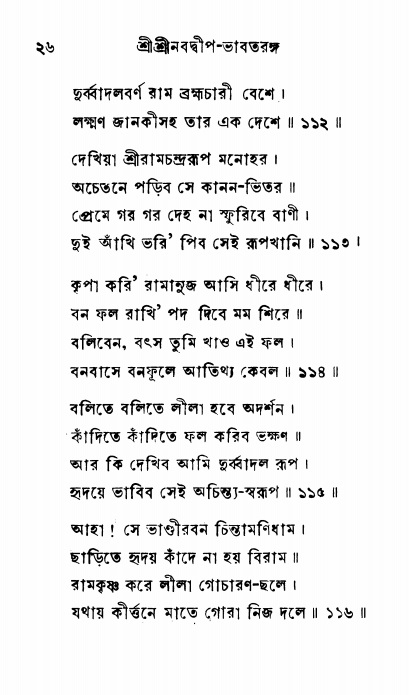 ২৬ শ্রীশ্রীনবদ্বীপ-ভাবতরঙ্গ
দুর্ব্বাদলবর্ণ রাম ব্রহ্মচারী বেশে ।
লক্ষ্মণ জানকীসহ তার এক দেশে ॥ ১১২ ॥
দেখিয়া শ্রীরামচন্দ্ররূপ মনোহর ।
অচেতনে পড়িব সে কানন-ভিতর ॥
প্রেমে গর গর দেহ না স্ফূরিবে বাণী ।
দুই আঁখি ভরি' পিব সেই রূপখানি ॥ ১১৩ ।
কৃপা করি' রামানুজ আসি ধীরে ধীরে ।
বন ফল রাখি' পদ দিবে মম শিরে ॥
বলিবেন, বৎস তুমি খাও এই ফল ।
বনবাসে বনফূলে আতিথ্য কেবল ॥ ১১৪ ॥
বলিতে বলিতে লীলা হবে অদর্শন ।
কাঁদিতে কাঁদিতে ফল করিব ভক্ষণ ॥
আর কি দেখিব আমি দুর্ব্বাদল রূপ ।
হৃদয়ে ভাবিব সেই অচিন্ত্য-স্বরূপ ॥ ১১৫ ॥
আহা ! সে ভাণ্ডীরবন চিন্তামণিধাম ।
ছাড়িতে হৃদয় কাঁদে না হয় বিরাম ॥
রামকৃষ্ণ করে লীলা গোচারণ-ছলে ।
যথায় কীর্ত্তনে মাতে গোরা নিজ দলে ॥ ১১৬ ॥